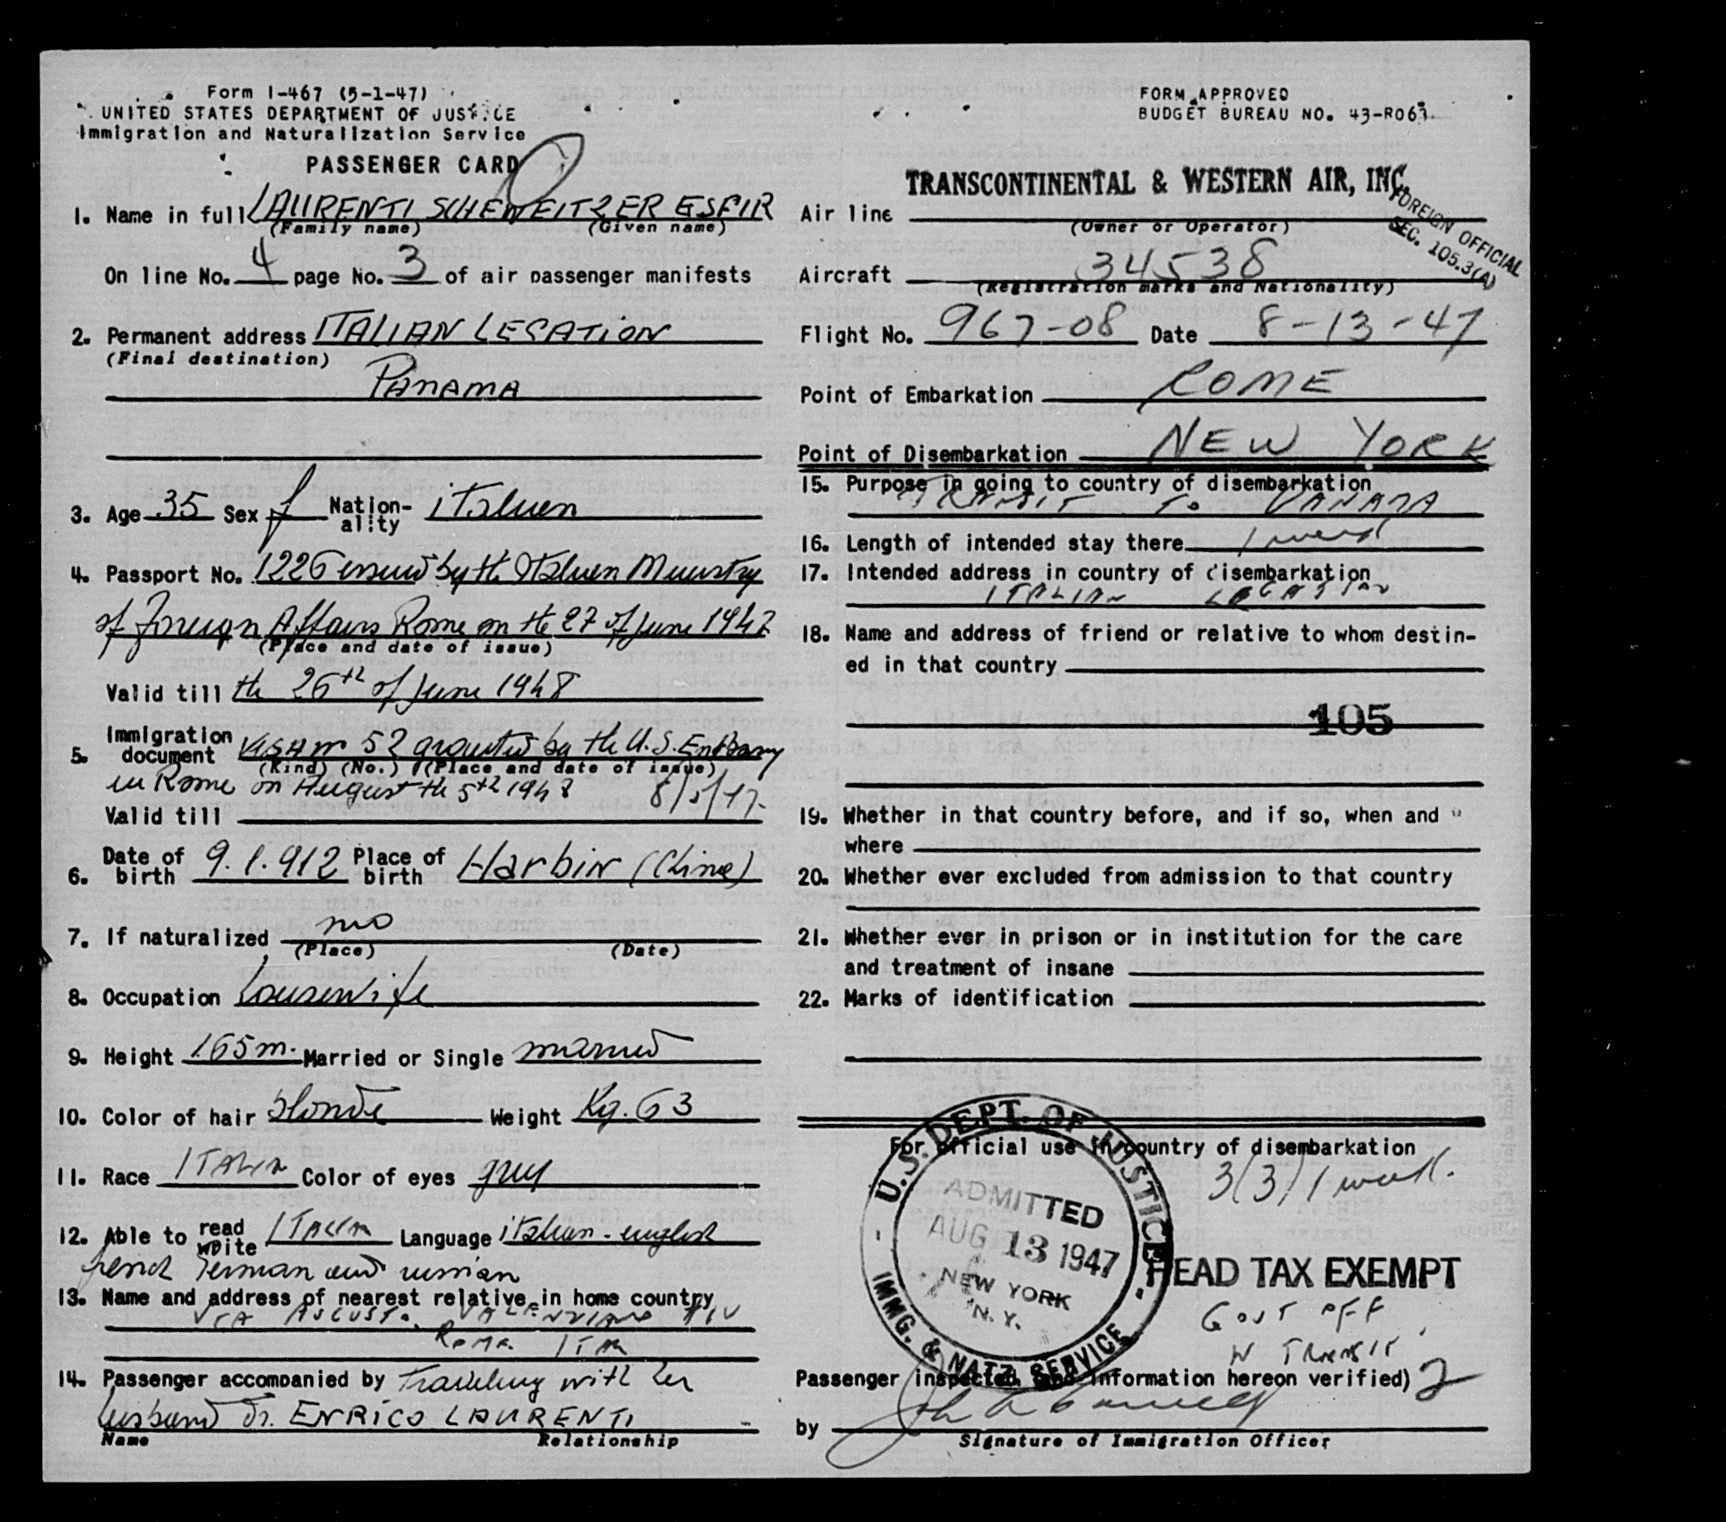 Form I-467 (5-1-47)
UNITED STATES DEPARTMENT OF JUSTICE
Immigration and Naturalization Service
PASSENGER CARD
1. Name in full LAURENTI SCHEWEITZER ESFIR
(Family name) (Given name)
On line No. 4 page No. 3 of air passenger manifests
2. Permanent address ITALIAN LEGATION
(Final destination)
PANAMA
3. Age 35 Sex f Nation-ality italien
4. Passport No. 1226 issued by the Italien Ministry
of Foreign Affairs Rome on the 27 of June 1947
(Place and date of issue)
Valid till the 26th of June 1948
5. Immigration document visa nr 52 granted by the U.S. Embassy
(Kind) (No.) (Place and date of issue)
in Rome on August the 5th 1947 8/5/47.
Valid till
6. Date of birth 9.1.912 Place of birth Harbin (China)
7. If naturalized no
(Place) (Date)
8. Occupation housewife
9. Height 1.65 m. Married or Single married
10. Color of hair blonde Weight Kg. 63
11. Race ITALIAN Color of eyes grey
12. Able to read write ITALIAN Language italian - english
french german and russian
13. Name and address of nearest relative in home country
VIA AUGUSTO
ROMA ITALY
14. Passenger accompanied by Travelling with her
husband Dr. ENRICO LAURENTI
Name Relationship
FORM APPROVED
BUDGET BUREAU NO. 43-R063.
TRANSCONTINENTAL & WESTERN AIR, INC.
Air line
(Owner or Operator)
FOREIGN OFFICIAL
SEC. 105.3(A)
Aircraft 34538
(Registration marks and Nationality)
Flight No. 967-08 Date 8-13-47
Point of Embarkation ROME
Point of Disembarkation NEW YORK
15. Purpose in going to country of disembarkation
TRANSIT TO PANAMA
16. Length of intended stay there 1 week
17. Intended address in country of disembarkation
ITALIAN LEGATION
18. Name and address of friend or relative to whom destin-
ed in that country
105
19. Whether in that country before, and if so, when and
where
20. Whether ever excluded from admission to that country
21. Whether ever in prison or in institution for the care
and treatment of insane
22. Marks of identification
For official use in country of disembarkation
3(3) 1 week.
U.S. DEPT. OF JUSTICE
ADMITTED
AUG 13 1947
NEW YORK
N.Y.
IMMG. & NATZ. SERVICE
HEAD TAX EXEMPT
GOVT OFF
IN TRANSIT
Passenger inspected (and information hereon verified) 2
by
Signature of Immigration Officer